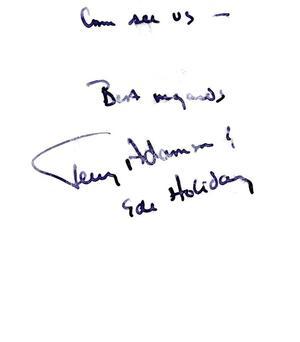 Come see us —
Best regards
Terry Adamson &
Ede Holiday